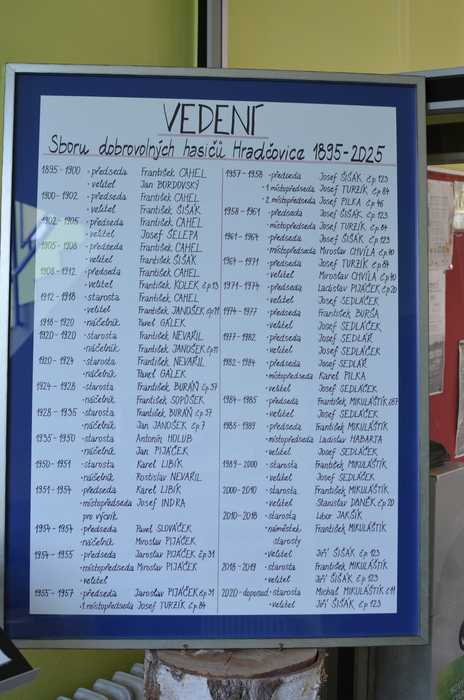 VEDENÍ
Sboru dobrovolných hasičů Hradčovice 1895-2025
1895-1900 ·předseda František CAHEL
·velitel Jan BORDOVSKÝ
1900-1902 ·předseda František CAHEL
·velitel František ŠIŠÁK
1902-1905 ·předseda František CAHEL
·velitel Josef ŠELEPA
1905-1908 ·předseda František CAHEL
·velitel František ŠIŠÁK
1908-1912 ·předseda František CAHEL
·velitel František KOLEK č.p.13
1912-1918 ·starosta František CAHEL
·velitel František JANOŠEK č.p.11
1918-1920 ·náčelník Pavel GÁLEK
1920-1920 ·starosta František NEVAŘIL
·náčelník František JANOŠEK č.p.11
1920-1924 ·starosta František NEVAŘIL
·náčelník Pavel GÁLEK
1924-1928 ·starosta František BURÁŇ č.p.57
·náčelník František SOPŮŠEK
1928-1935 ·starosta František BURÁŇ č.p.57
·náčelník Jan JANOŠEK č.p.7
1935-1950 ·starosta Antonín HOLUB
·náčelník Jan PIJÁČEK
1950-1951 ·starosta Karel LIBÍK
·náčelník Rostislav NEVAŘIL
1951-1954 ·předseda Karel LIBÍK
·místopředseda Josef INDRA
pro výcvik
1954-1954 ·předseda Pavel SLOVÁČEK
·náčelník Miroslav PIJÁČEK
1954-1955 ·předseda Jaroslav PIJÁČEK č.p.31
·místopředseda Miroslav PIJÁČEK
·velitel
1955-1957 ·předseda Jaroslav PIJÁČEK č.p.31
·1.místopředseda Josef TURZÍK č.p.84
1957-1958 ·předseda Josef ŠIŠÁK č.p.123
·1.místopředseda Josef TURZÍK č.p.84
·2.místopředseda Josef PILKA č.p.46
1958-1961 ·předseda Josef ŠIŠÁK č.p.123
·místopředseda Josef TURZÍK č.p.84
1961-1964 ·předseda Josef ŠIŠÁK č.p.123
·místopředseda Miroslav CHVÍLA č.p.40
1964-1971 ·předseda Josef TURZÍK č.p.84
·velitel Miroslav CHVÍLA č.p.40
1971-1974 ·předseda Ladislav PIJÁČEK č.p.20
·velitel Josef SEDLÁČEK
1974-1977 ·předseda František BURŠA
·velitel Josef SEDLÁČEK
1977-1982 ·předseda Josef SEDLÁŘ
·velitel Josef SEDLÁČEK
1982-1984 ·předseda Josef SEDLÁŘ
·místopředseda Karel PILKA
·velitel Josef SEDLÁČEK
1984-1985 ·předseda František MIKULÁŠTÍK
·velitel Josef SEDLÁČEK
1985-1989 ·předseda František MIKULÁŠTÍK
·místopředseda Ladislav HABARTA
·velitel Josef SEDLÁČEK
1989-2000 ·starosta František MIKULÁŠTÍK
·velitel Josef SEDLÁČEK
2000-2010 ·starosta František MIKULÁŠTÍK
·velitel Stanislav DANĚK č.p.20
2010-2018 ·starosta Libor JAKŠÍK
·náměstek František MIKULÁŠTÍK
starosty
·velitel Jiří ŠIŠÁK č.p.123
2018-2019 ·starosta František MIKULÁŠTÍK
·velitel Jiří ŠIŠÁK č.p.123
2020-doposud ·starosta Michal MIKULÁŠTÍK č.11
·velitel Jiří ŠIŠÁK č.p.123